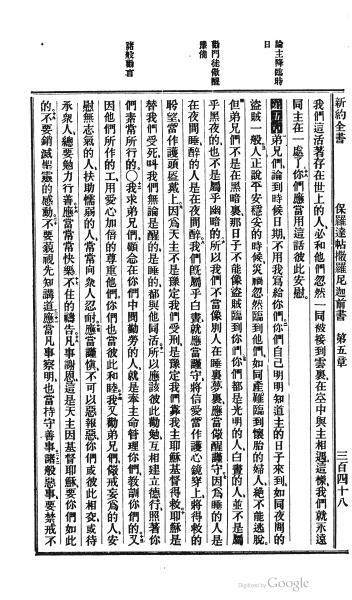 新約全書　保羅達帖撒羅尼迦前書　第五章　三百四十八
我們這活著存在世上的人、必和他們忽然一同被接到雲裏、在空中與主相遇、這樣、我們就永遠
同主在一處了、你們應當用這話彼此安慰、
論主降臨時日
第五章　弟兄們、論到時候日期、不用我寫給你們、你們自己明明知道主的日子來到、如同夜間的
盜賊一般、人正說平安穩妥的時候、災禍忽然臨到他們、如同產難臨到懷胎的婦人、絕不能逃脫、
但弟兄們不是在黑暗裏、那日子不能像盜賊臨到你們、你們都是光明的人、白晝的人、並不是屬
勸門徒儆醒豫備
乎黑夜的、也不是屬乎幽暗的、所以我們不當像別人在睡夢裏、應當儆醒謹守、因為睡的人是
在夜間睡、醉的人是在夜間醉、我們既屬乎白晝、就應當謹守、將信愛當作護心鏡穿上、將得救的
盼望當作護頭盔戴上、因為天主不是豫定我們受刑、是豫定我們靠我主耶穌基督得救、耶穌是
替我們受死、叫我們無論是醒的、是睡的、都與他同活、所以應該彼此勸勉、互相建立德行、照著你
諸般勸言
們素常所行的、○我求弟兄們、顧念在你們中間勤勞的人、就是奉主命管理你們、教訓你們的、又
因他們所作的工、用愛心加倍的尊重他們、你們也當彼此和睦、我又勸弟兄們、儆戒妄為的人、安
慰無志氣的人、扶助懦弱的人、常常向衆人忍耐、應當謹慎、不可以惡報惡、你們或彼此相交、或待
承衆人、總要勉力行善、應當常常快樂、不住的禱告、凡事謝恩、這是天主因基督耶穌、要你們如此
的、不要銷滅聖靈的感動、不要藐視先知講道、應當凡事察明、也當持守善事、諸般惡事、要禁戒不
Digitized by Google